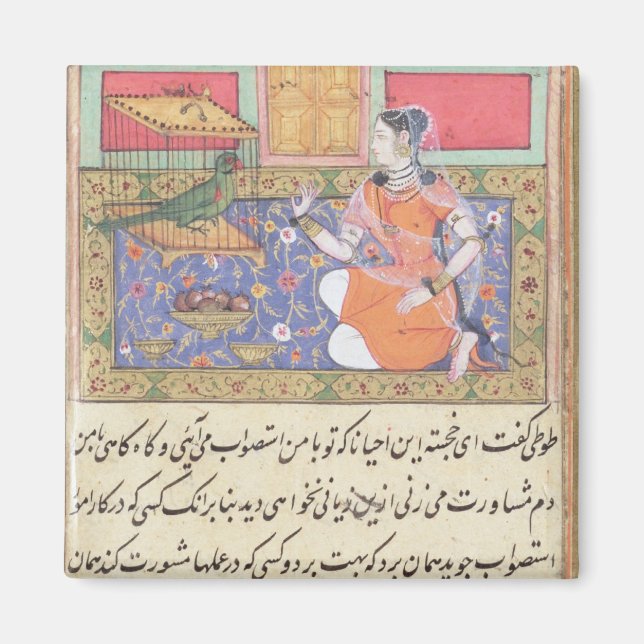 طوطی گفت ای خجسته این احیانا که تو با من استصواب می آیئی و گاه گاهی با من
دم مشاورت می زنی ازین زیانی نخواهی دید بنا بر انک کسی که در کارها مو
استصواب جوید همان برد که بهت برد و کسی که در عملها مشورت کند همان